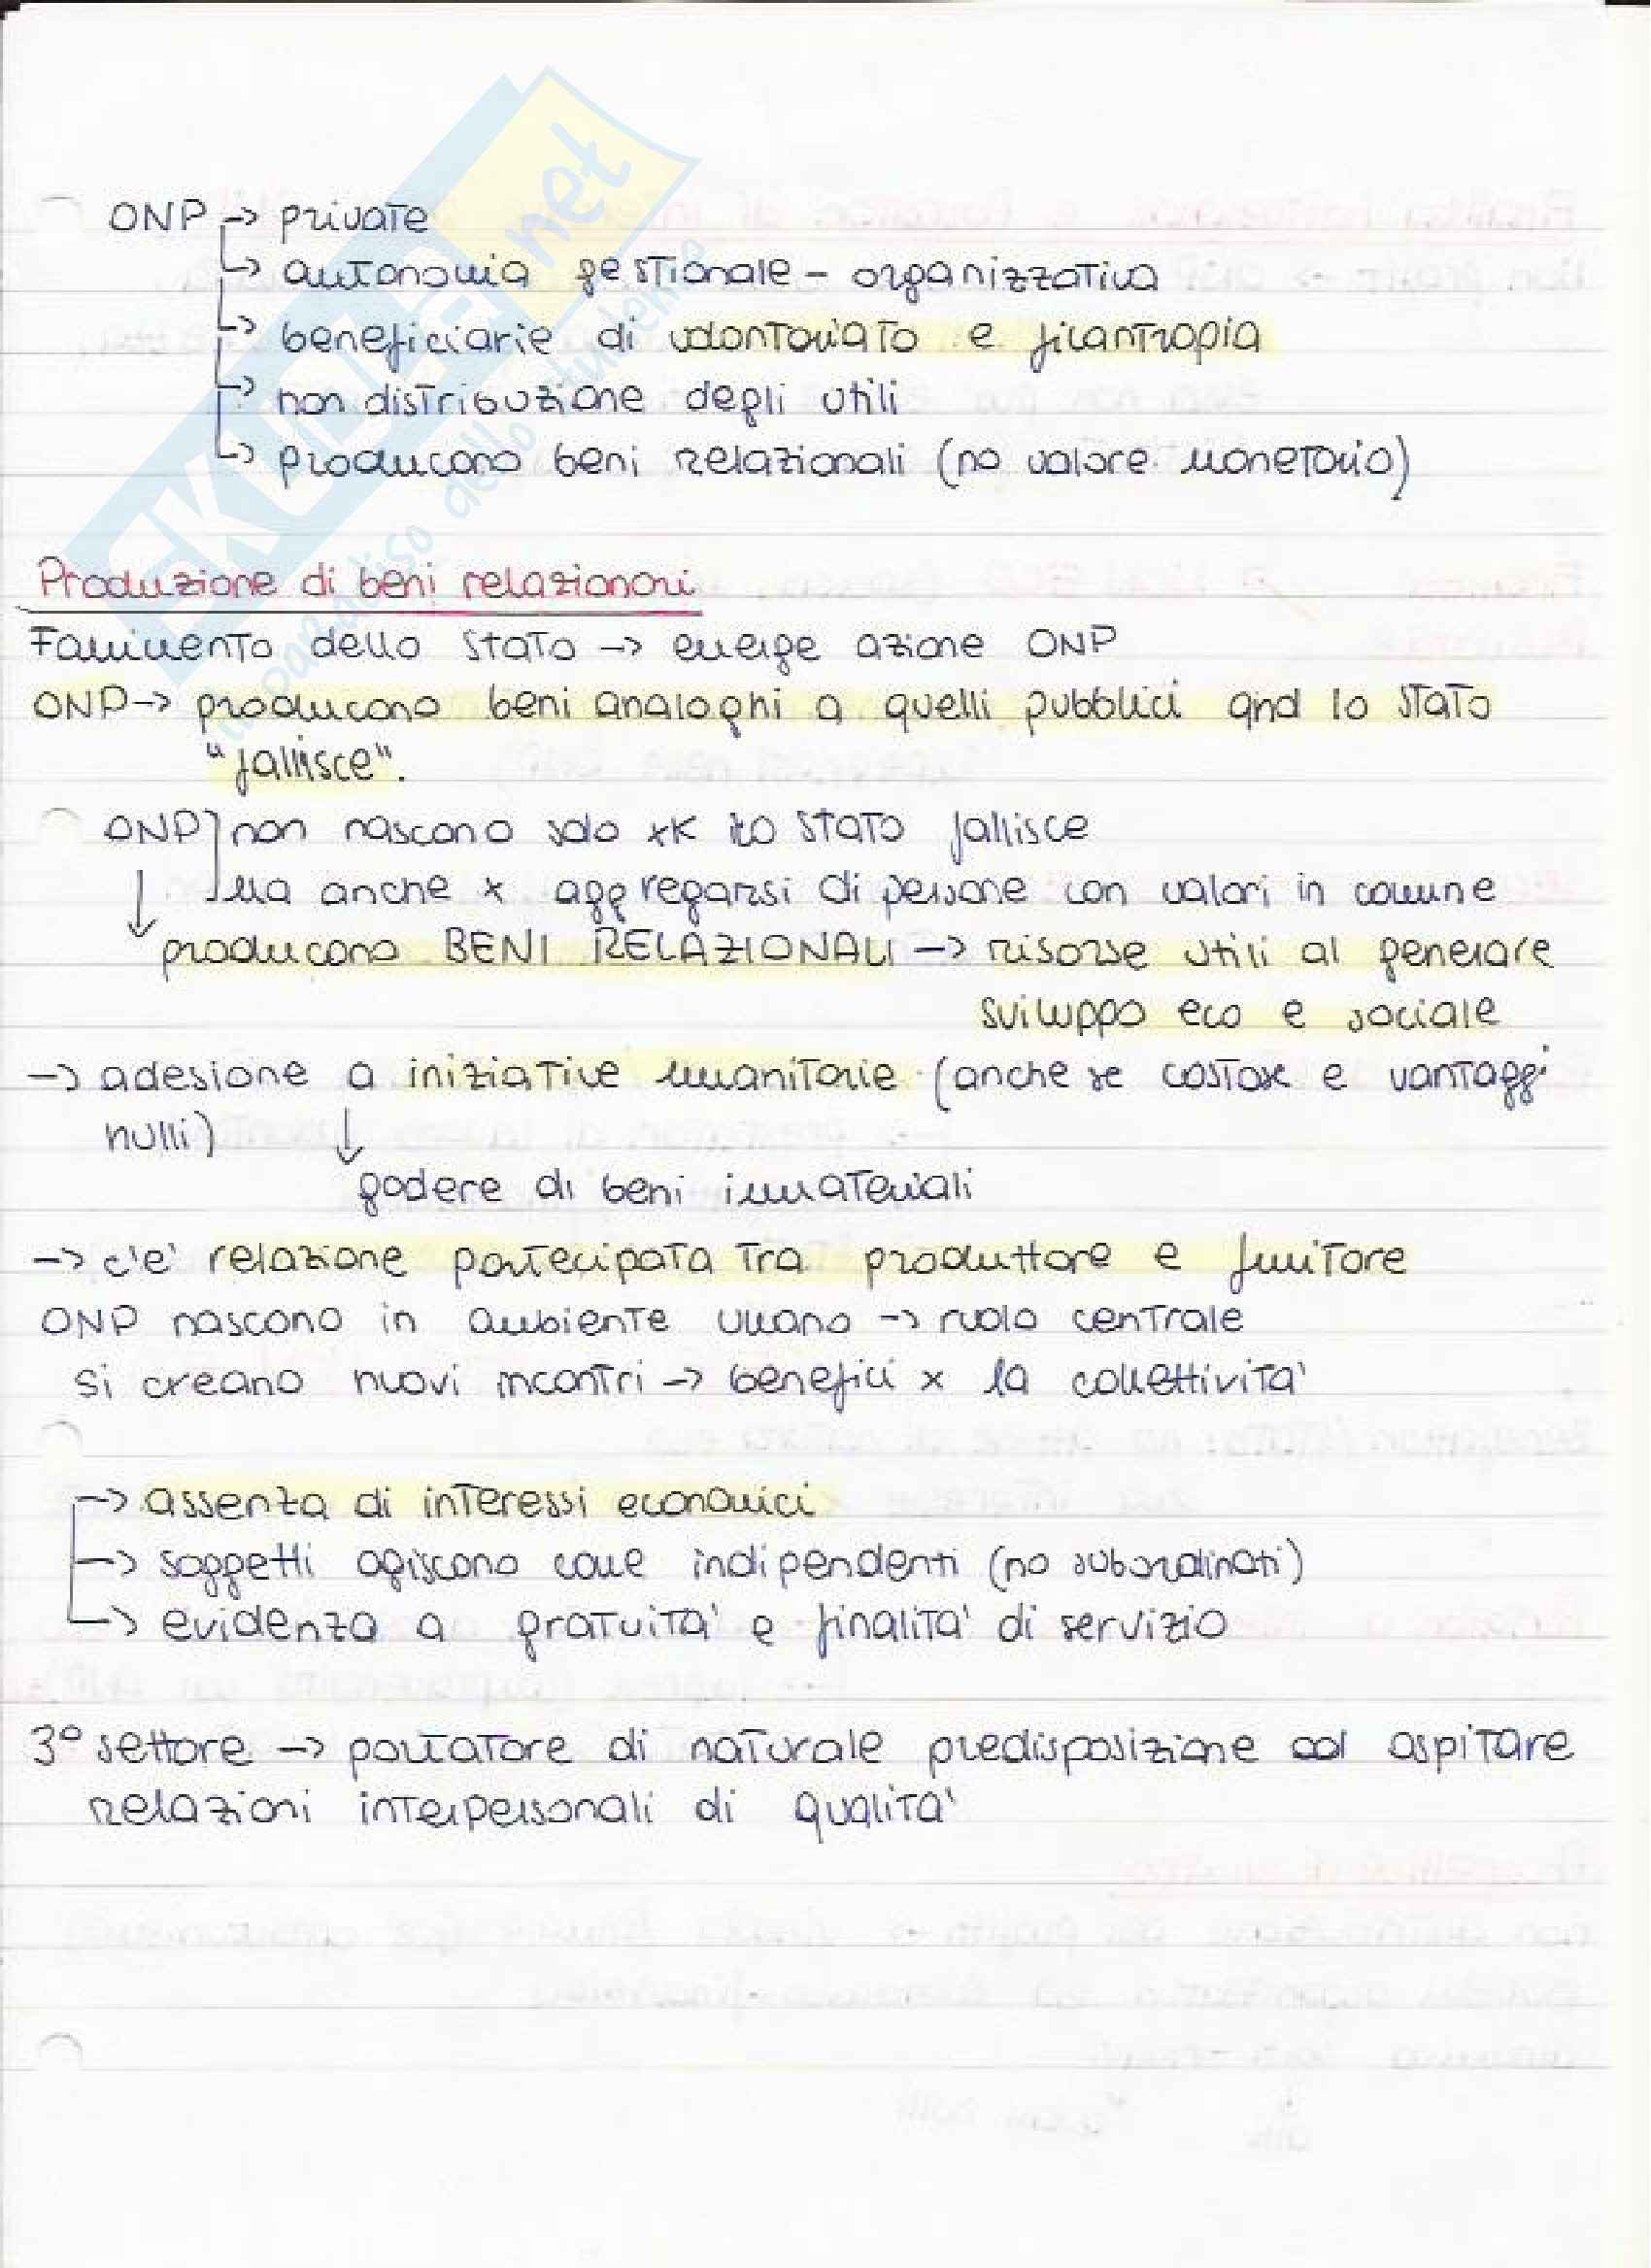 SKUOLA.net
il paradiso dello studente
ONP → private
↳ autonomia gestionale - organizzativa
↳ beneficiarie di volontariato e filantropia
↳ non distribuzione degli utili
↳ producono beni relazionali (no valore monetario)
Produzione di beni relazionari
Fallimento dello Stato → emerge azione ONP
ONP → producono beni analoghi a quelli pubblici qnd lo Stato
"fallisce".
ONP non nascono solo xk lo Stato fallisce
↓ ma anche x aggregarsi di persone con valori in comune
producono BENI RELAZIONALI → risorse utili al generare
sviluppo eco e sociale
→ adesione a iniziative umanitarie (anche se costose e vantaggi
nulli) ↓
godere di beni immateriali
→ c'e' relazione partecipata tra produttore e fruitore
ONP nascono in ambiente umano → ruolo centrale
si creano nuovi incontri → benefici x la collettivita'
→ assenza di interessi economici
→ soggetti agiscono come indipendenti (no subordinati)
→ evidenza a gratuita' e finalita' di servizio
3° settore → portatore di naturale predisposizione ad ospitare
relazioni interpersonali di qualita'